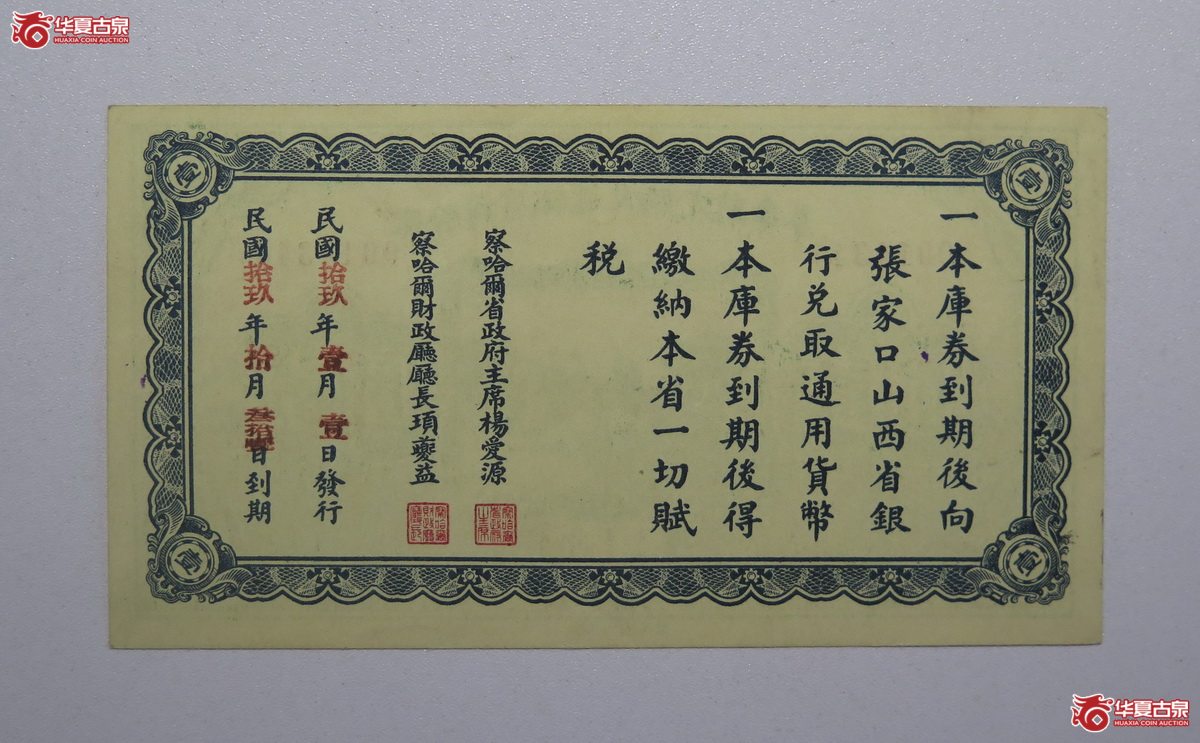 华夏古泉
HUAXIA COIN AUCTION
壹
壹
一本庫券到期後向
張家口山西省銀
行兌取通用貨幣
一本庫券到期後得
繳納本省一切賦
税
察哈爾省政府主席楊愛源
察哈爾財政廳廳長頊夔益
民國拾玖年壹月壹日發行
民國拾玖年拾月叁拾壹日到期
壹
壹
华夏古泉
HUAXIA COIN AUCTION